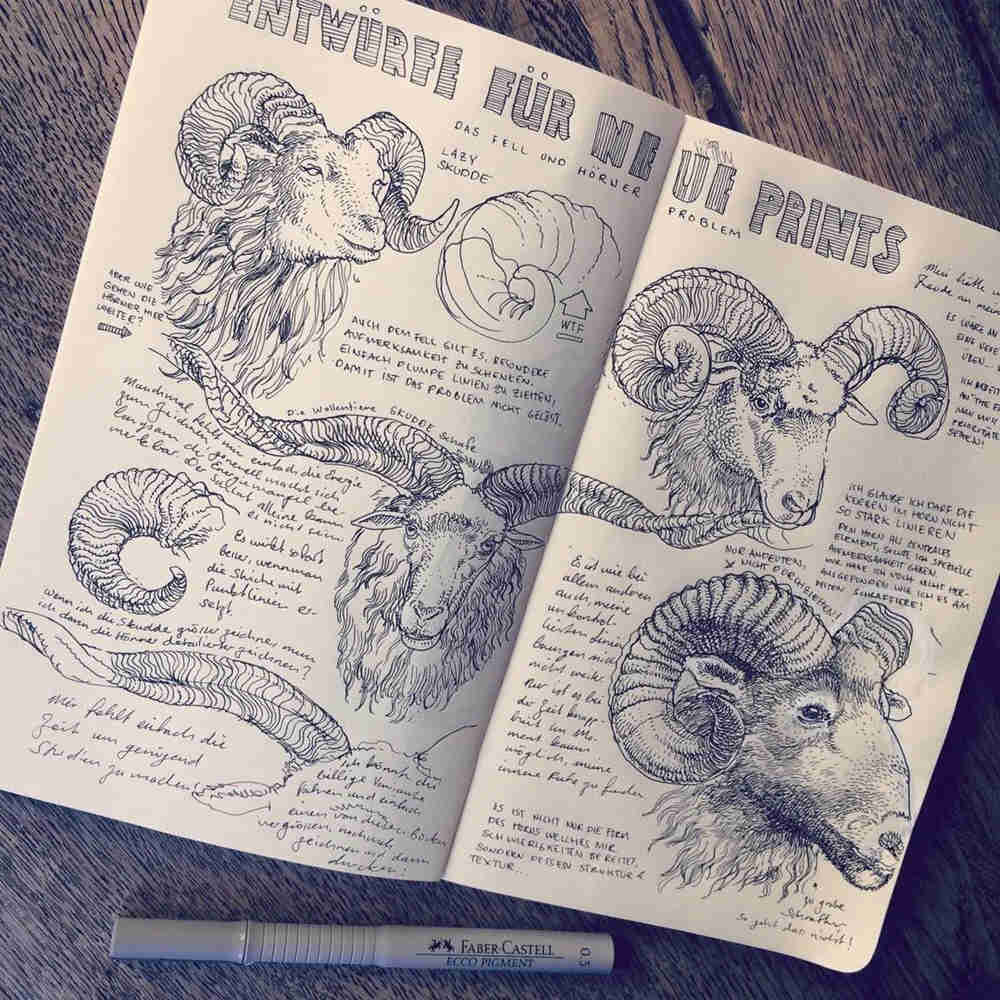 ENTWÜRFE FÜR NEUE PRINTS
DAS FELL UND HÖRNER PROBLEM
LAZY
SKUDDE
ABER WIE
GEHEN DIE
HÖRNER HIER
WEITER?
WTF
AUCH DEM FELL GILT ES, BESONDERE
AUFMERKSAMKEIT ZU SCHENKEN.
EINFACH PLUMPE LINIEN ZU ZIEHEN,
DAMIT IST DAS PROBLEM NICHT GELÖST.
Die Wollentiere SKUDDE Schafe
Manchmal fehlt mir einfach die Energie
zum Zeichnen, generell macht sich
langsam der
merkbar. Der
Es wirkt so als
besser, wenn man
die Striche mit
Punktlinien er-
setzt
Wenn ich die Skudde größer zeichne, muss
ich dann die Hörner detaillierter zeichnen?
Mir fehlt einfach die
Zeit um genügend
Studien zu machen!
Ich könnte die
billige Variante
fahren und einfach
einen von diesen Böcken
vergrößern, nochmal
zeichnen und dann
drucken!
Man hätte
Freude an mei
ES WÄRE
EINE
ÜBER
ICH
AN
NUN UND
PRIORITÄ
SETZEN!
ICH GLAUBE ICH DARF DIE
KERBEN IM HORN NICHT
SO STARK LINIEREN
DEN HORN ALS ZENTRALES
ELEMENT, SOLLTE ICH SPEZIELLE
AUFMERKSAMKEIT GEBEN
NUR HABE ICH NOCH NICHT HER-
AUSGEFUNDEN WIE ICH ES AM
BESTEN SCHRAFFIERE!
NUR ANDEUTEN,
NICHT ÜBERTREIBEN!
Es ist wie bei
allem anderen
auch, meine
unkontrol-
lierten Linien
bringen mich
nicht weiter
Nur ist es bei
der Zeitknapp-
heit im Mo-
ment kaum
möglich, meine
innere Ruhe zu finden
ES IST NICHT NUR DIE FORM
DES HORNS WELCHES MIR
SCHWIERIGKEITEN BEREITET,
SONDERN DESSEN STRUKTUR &
TEXTUR...
zu grobe
Schraffur
So geht das nicht!
FABER-CASTELL
ECCO PIGMENT
0.5